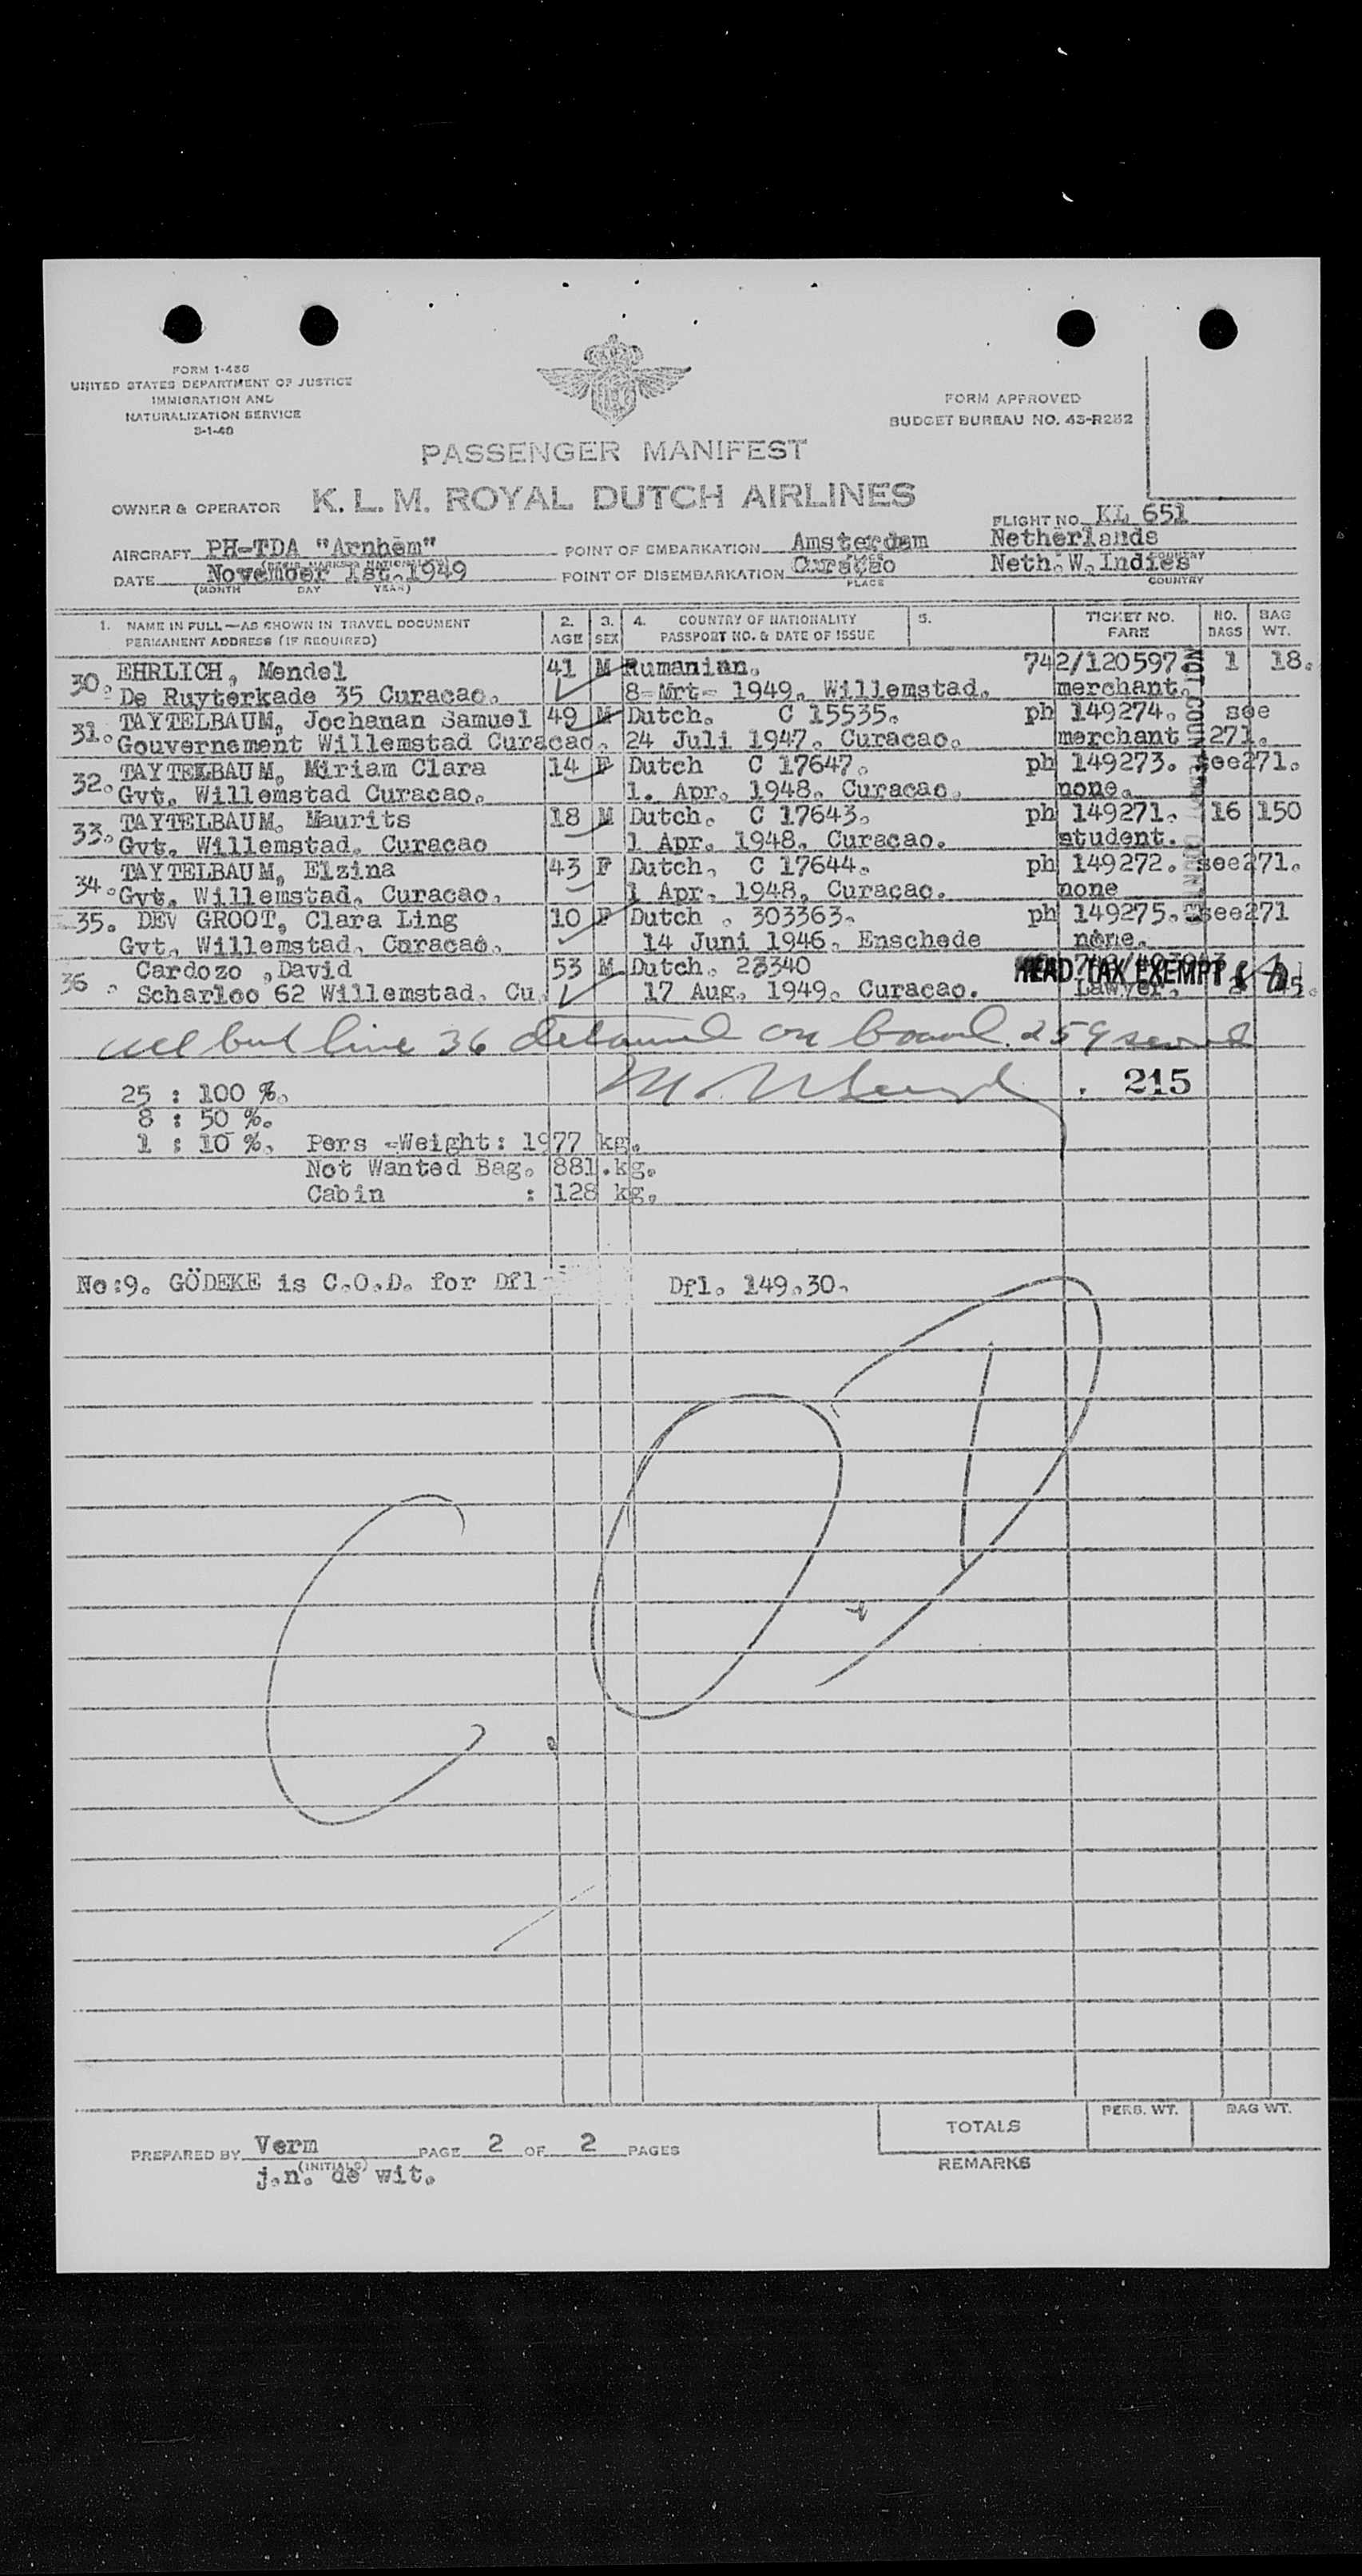 FORM 1-466
UNITED STATES DEPARTMENT OF JUSTICE
IMMIGRATION AND
NATURALIZATION SERVICE
FORM APPROVED
BUDGET BUREAU NO. 43-R252
PASSENGER MANIFEST
OWNER & OPERATOR K. L. M. ROYAL DUTCH AIRLINES
FLIGHT NO. KL 651
AIRCRAFT PH-TDA "Arnhem" POINT OF EMBARKATION Amsterdam Netherlands
PLACE COUNTRY
DATE November 1st. 1949 POINT OF DISEMBARKATION Curaçao Neth. W. Indies
(MONTH DAY YEAR) PLACE COUNTRY
1. NAME IN FULL—AS SHOWN IN TRAVEL DOCUMENT 2. 3. 4. COUNTRY OF NATIONALITY 5. TICKET NO. NO. BAG
PERMANENT ADDRESS (IF REQUIRED) AGE SEX PASSPORT NO. & DATE OF ISSUE FARE BAGS WT.
30. EHRLICH, Mendel 41 M Rumanian. 742/120597 1 18.
De Ruyterkade 35 Curacao. 8-Mrt- 1949. Willemstad. merchant.
31. TAYTELBAUM, Jochanan Samuel 49 M Dutch. C 15535. ph 149274. see
Gouvernement Willemstad Curacao. 24 Juli 1947. Curacao. merchant 271.
32. TAYTELBAUM, Miriam Clara 14 F Dutch C 17647. ph 149273. see271.
Gvt. Willemstad Curacao. 1. Apr. 1948. Curacao. none.
33. TAYTELBAUM. Maurits 18 M Dutch. C 17643. ph 149271. 16 150
Gvt. Willemstad. Curacao 1 Apr. 1948. Curacao. student.
34. TAYTELBAUM, Elzina 43 F Dutch. C 17644. ph 149272. see271.
Gvt. Willemstad. Curacao. 1 Apr. 1948. Curaçao. none
35. DEV GROOT, Clara Ling 10 F Dutch . 303363. ph 149275. see271
Gvt. Willemstad. Curacao. 14 Juni 1946. Enschede none.
36. Cardozo ,David 53 M Dutch. 23340 HEAD TAX EXEMPT
Scharloo 62 Willemstad. Cu. 17 Aug. 1949. Curacao. Lawyer.
all but line 36 detained on board. 259
215
25 : 100 %.
8 : 50 %.
1 : 10 %. Pers -Weight: 1977 kg.
Not Wanted Bag. 881.kg.
Cabin : 128 kg.
No:9. GÖDEKE is C.O.D. for Dfl Dfl. 149.30.
C. O. D
TOTALS PERS. WT. BAG WT.
PREPARED BY Verm PAGE 2 OF 2 PAGES
(INITIALS) REMARKS
j.n. de wit.